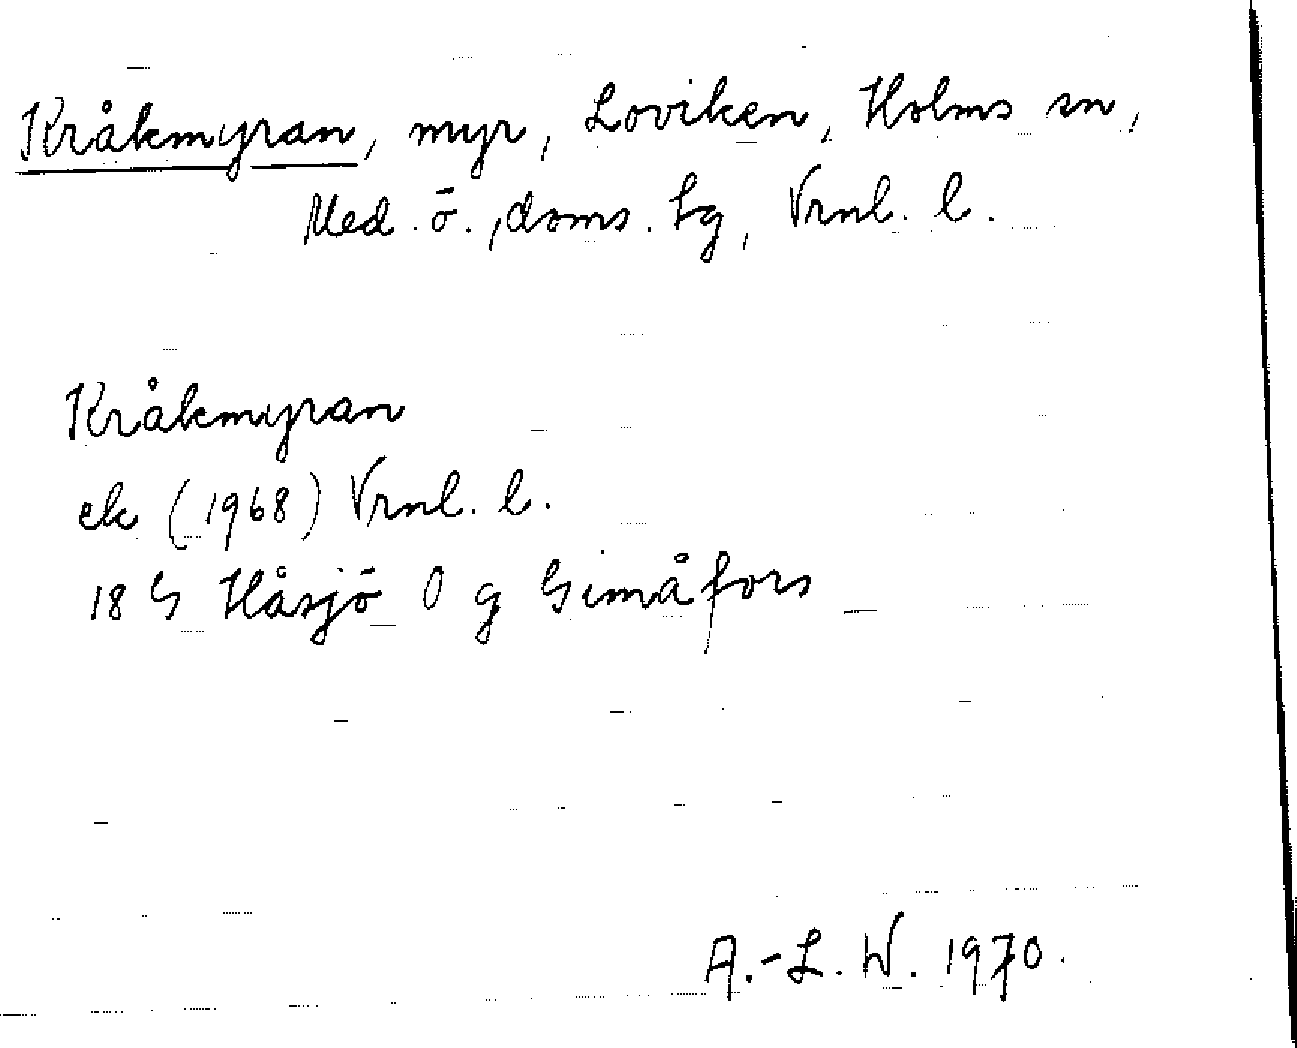 Kråkmyran, myr, Loviken, Holms sn,
Med. ö., doms. tg, Vrnl. l.
Kråkmyran
ek (1968) Vrnl. l.
18 G Håsjö O g Gimåfors
A.-L. W. 1970.